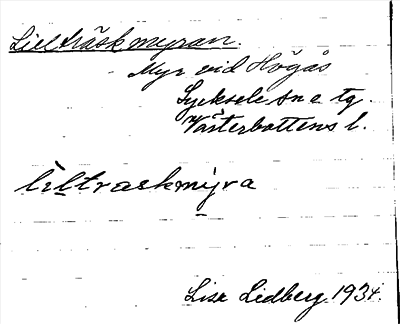 Lillträskmyran.
Myr vid Högås
Lycksele sn o tg.
Västerbottens l.
lìltraskmýra
Lisa Lidberg 1934.